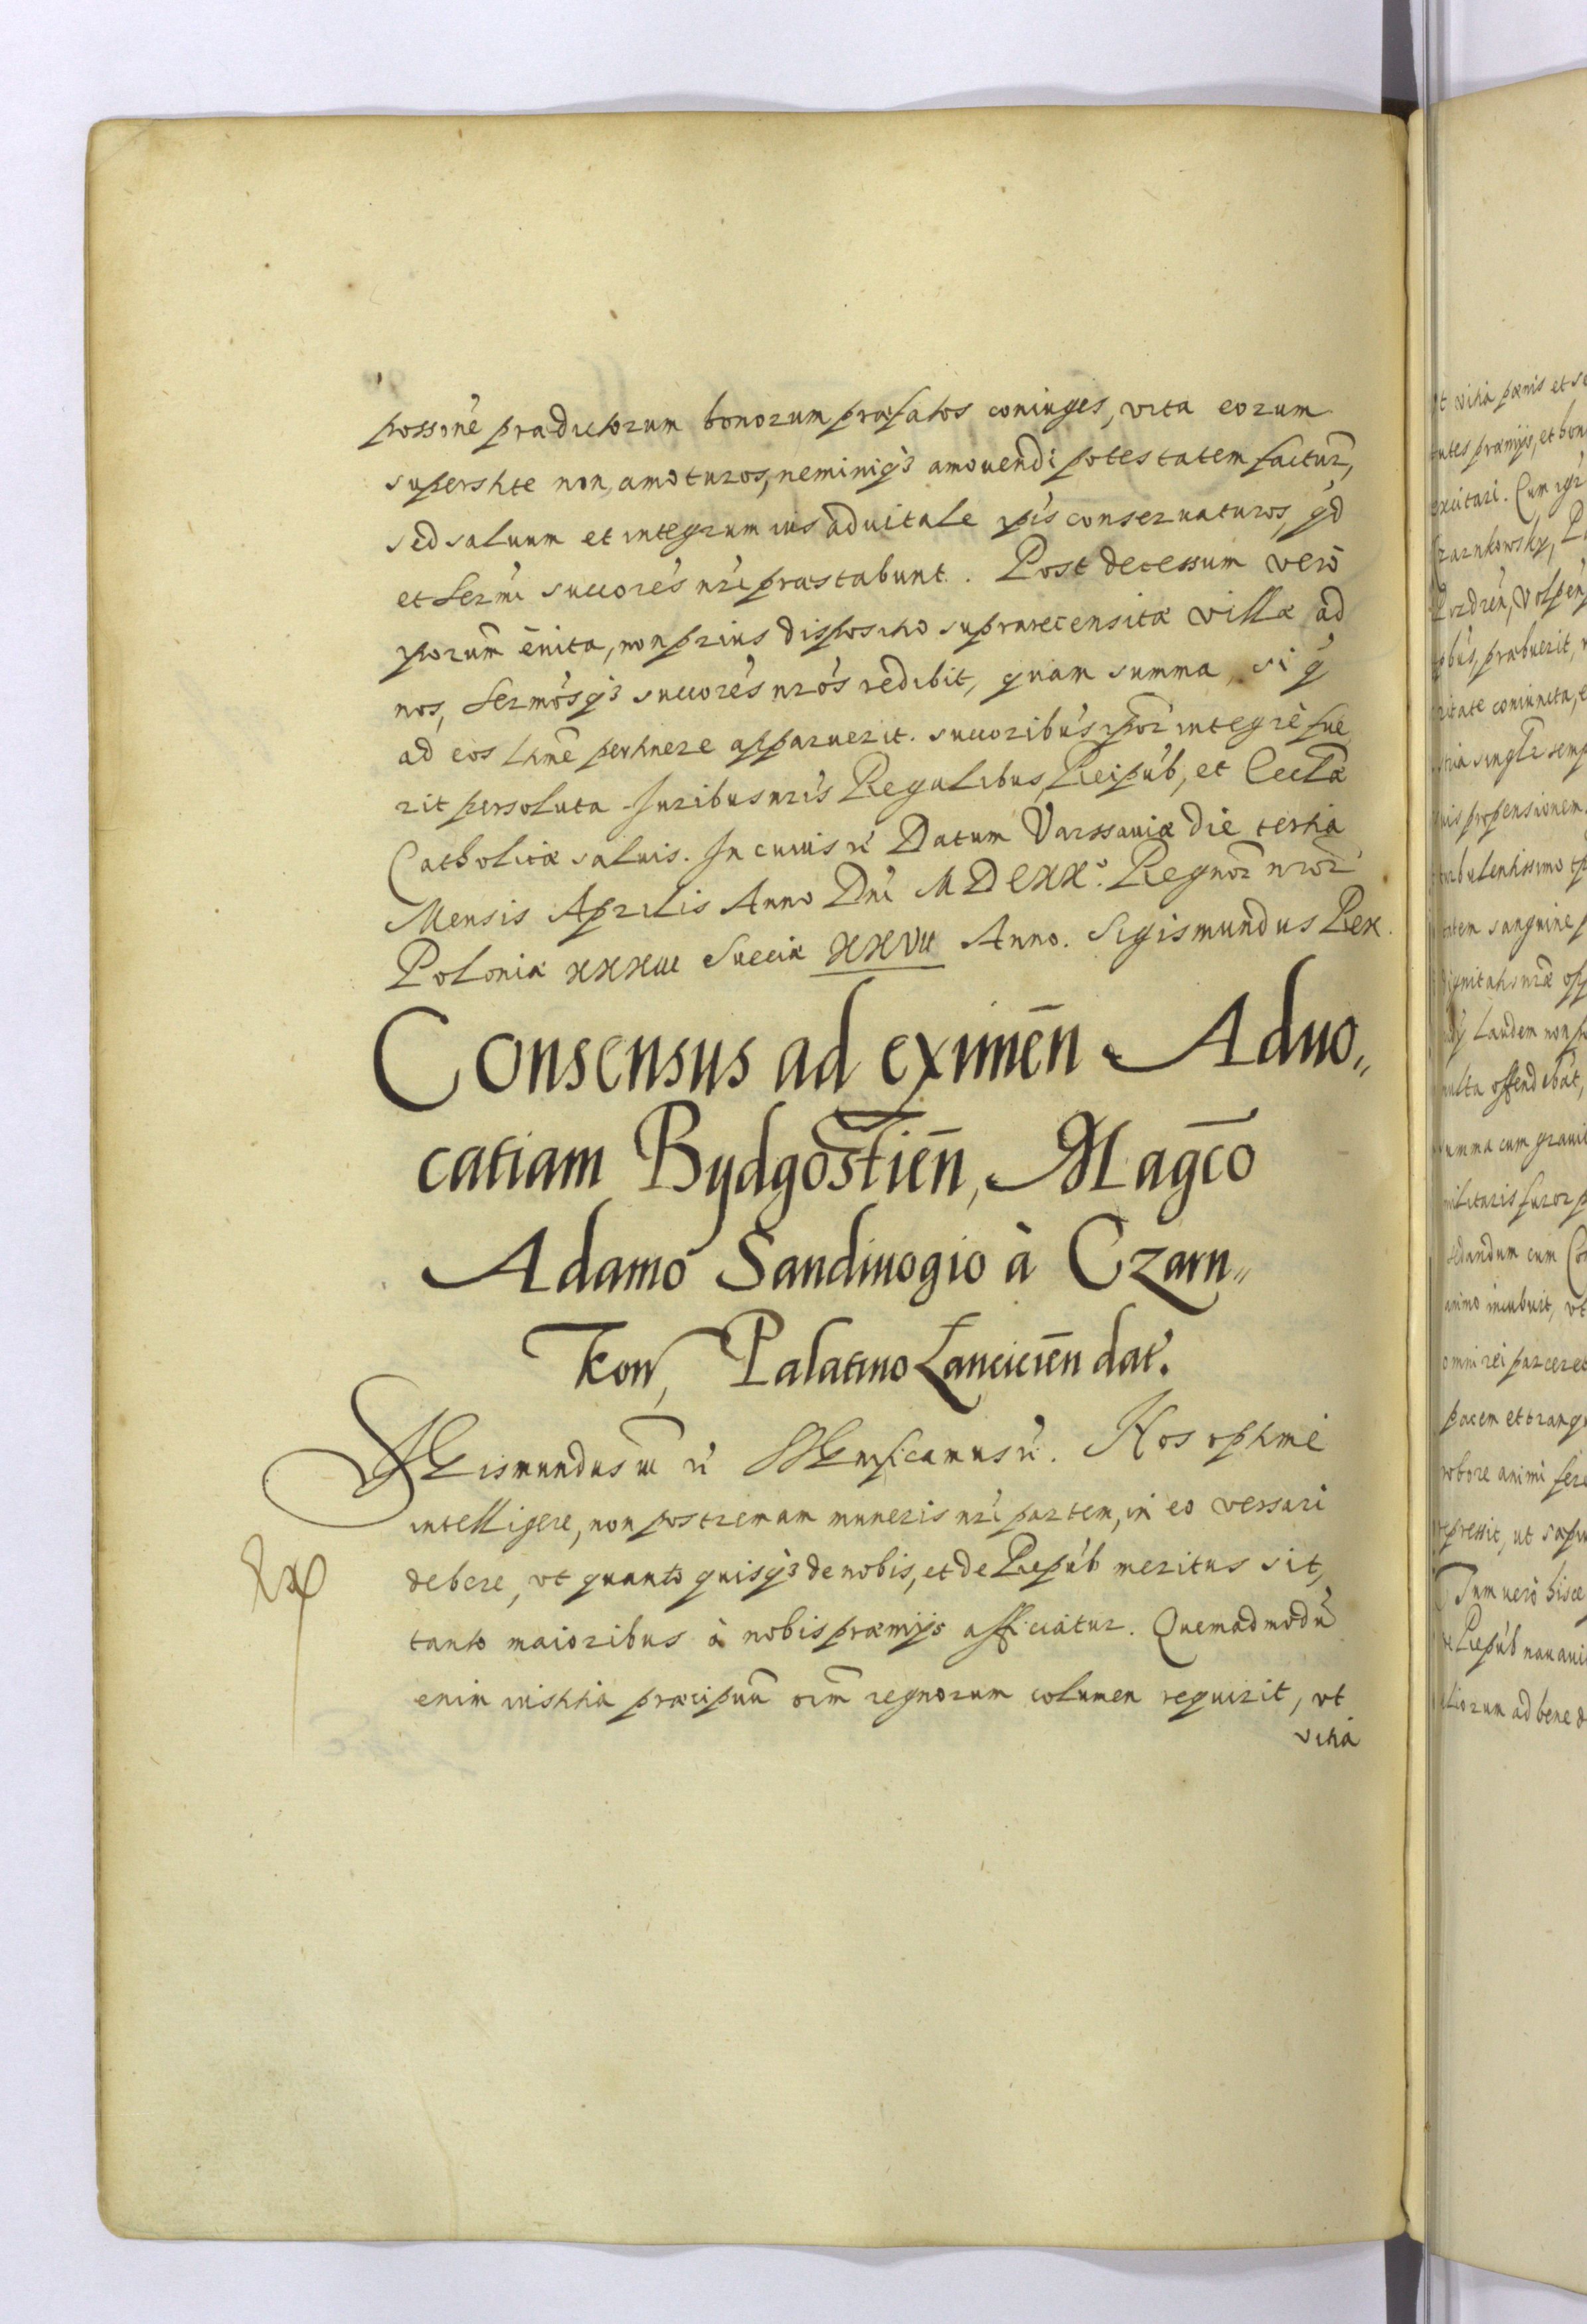 possone prædictorum bonorum præfatos coniuges, vita eorum
superstite non amoturos, neminiq3 amouendi potestatem factur,
sed saluum et integrum ius aduitale ipis conseruaturos, qd
et Sermi succores nri præstabunt. Post decessum verò
iporum è vita, non prius dispositio suprarecensitæ villæ ad
nos, Sermosq3 succores nros redibit, quam summa, si q
ad eos ltime pertinere apparuerit. succoribus ipor integrè fue
rit persoluta Iuribus nris Regalibus, Reipub, et Eccla
Catholicæ saluis. In cuius rei Datum Varssauiæ die tertia
Mensis Aprilis Anno Dni MDCXX°. Regnor nror
Poloniæ XXXIII Sueciæ XXVII Anno. Sigismundus Rex.
Consensus ad eximen Aduo„
catiam Bydgostien, Magco
Adamo Sandiuogio à Czarn„
kow, Palatino Lancicien dat.
Sigismundus III etc Significamus etc. Nos optime
intelligere, non postremam muneris nri partem, in eo versari
debere, vt quanto quisq3 de nobis, et de Repub meritus sit,
tanto maioribus à nobis præmijs afficiatur. Quemadmodu
enim iustitia præcipuu oim regnorum columen requirit, vt
vitia
t vitia pænis et
utes præmijs, et
excitari. Cum
zarnkowsky,
præbuerit,
ritate coniuncta,
uis propensionem
turbulentissimo
sanguine
dignitatis nræ
Laudem non
multa offendebat,
umma cum
militaris furor
edandum cum
animo incubuit, vt
omni rei parceret
pacem et
robore animi
pressit, ut
Tum verò hisce
Repub
aliorum ad bene